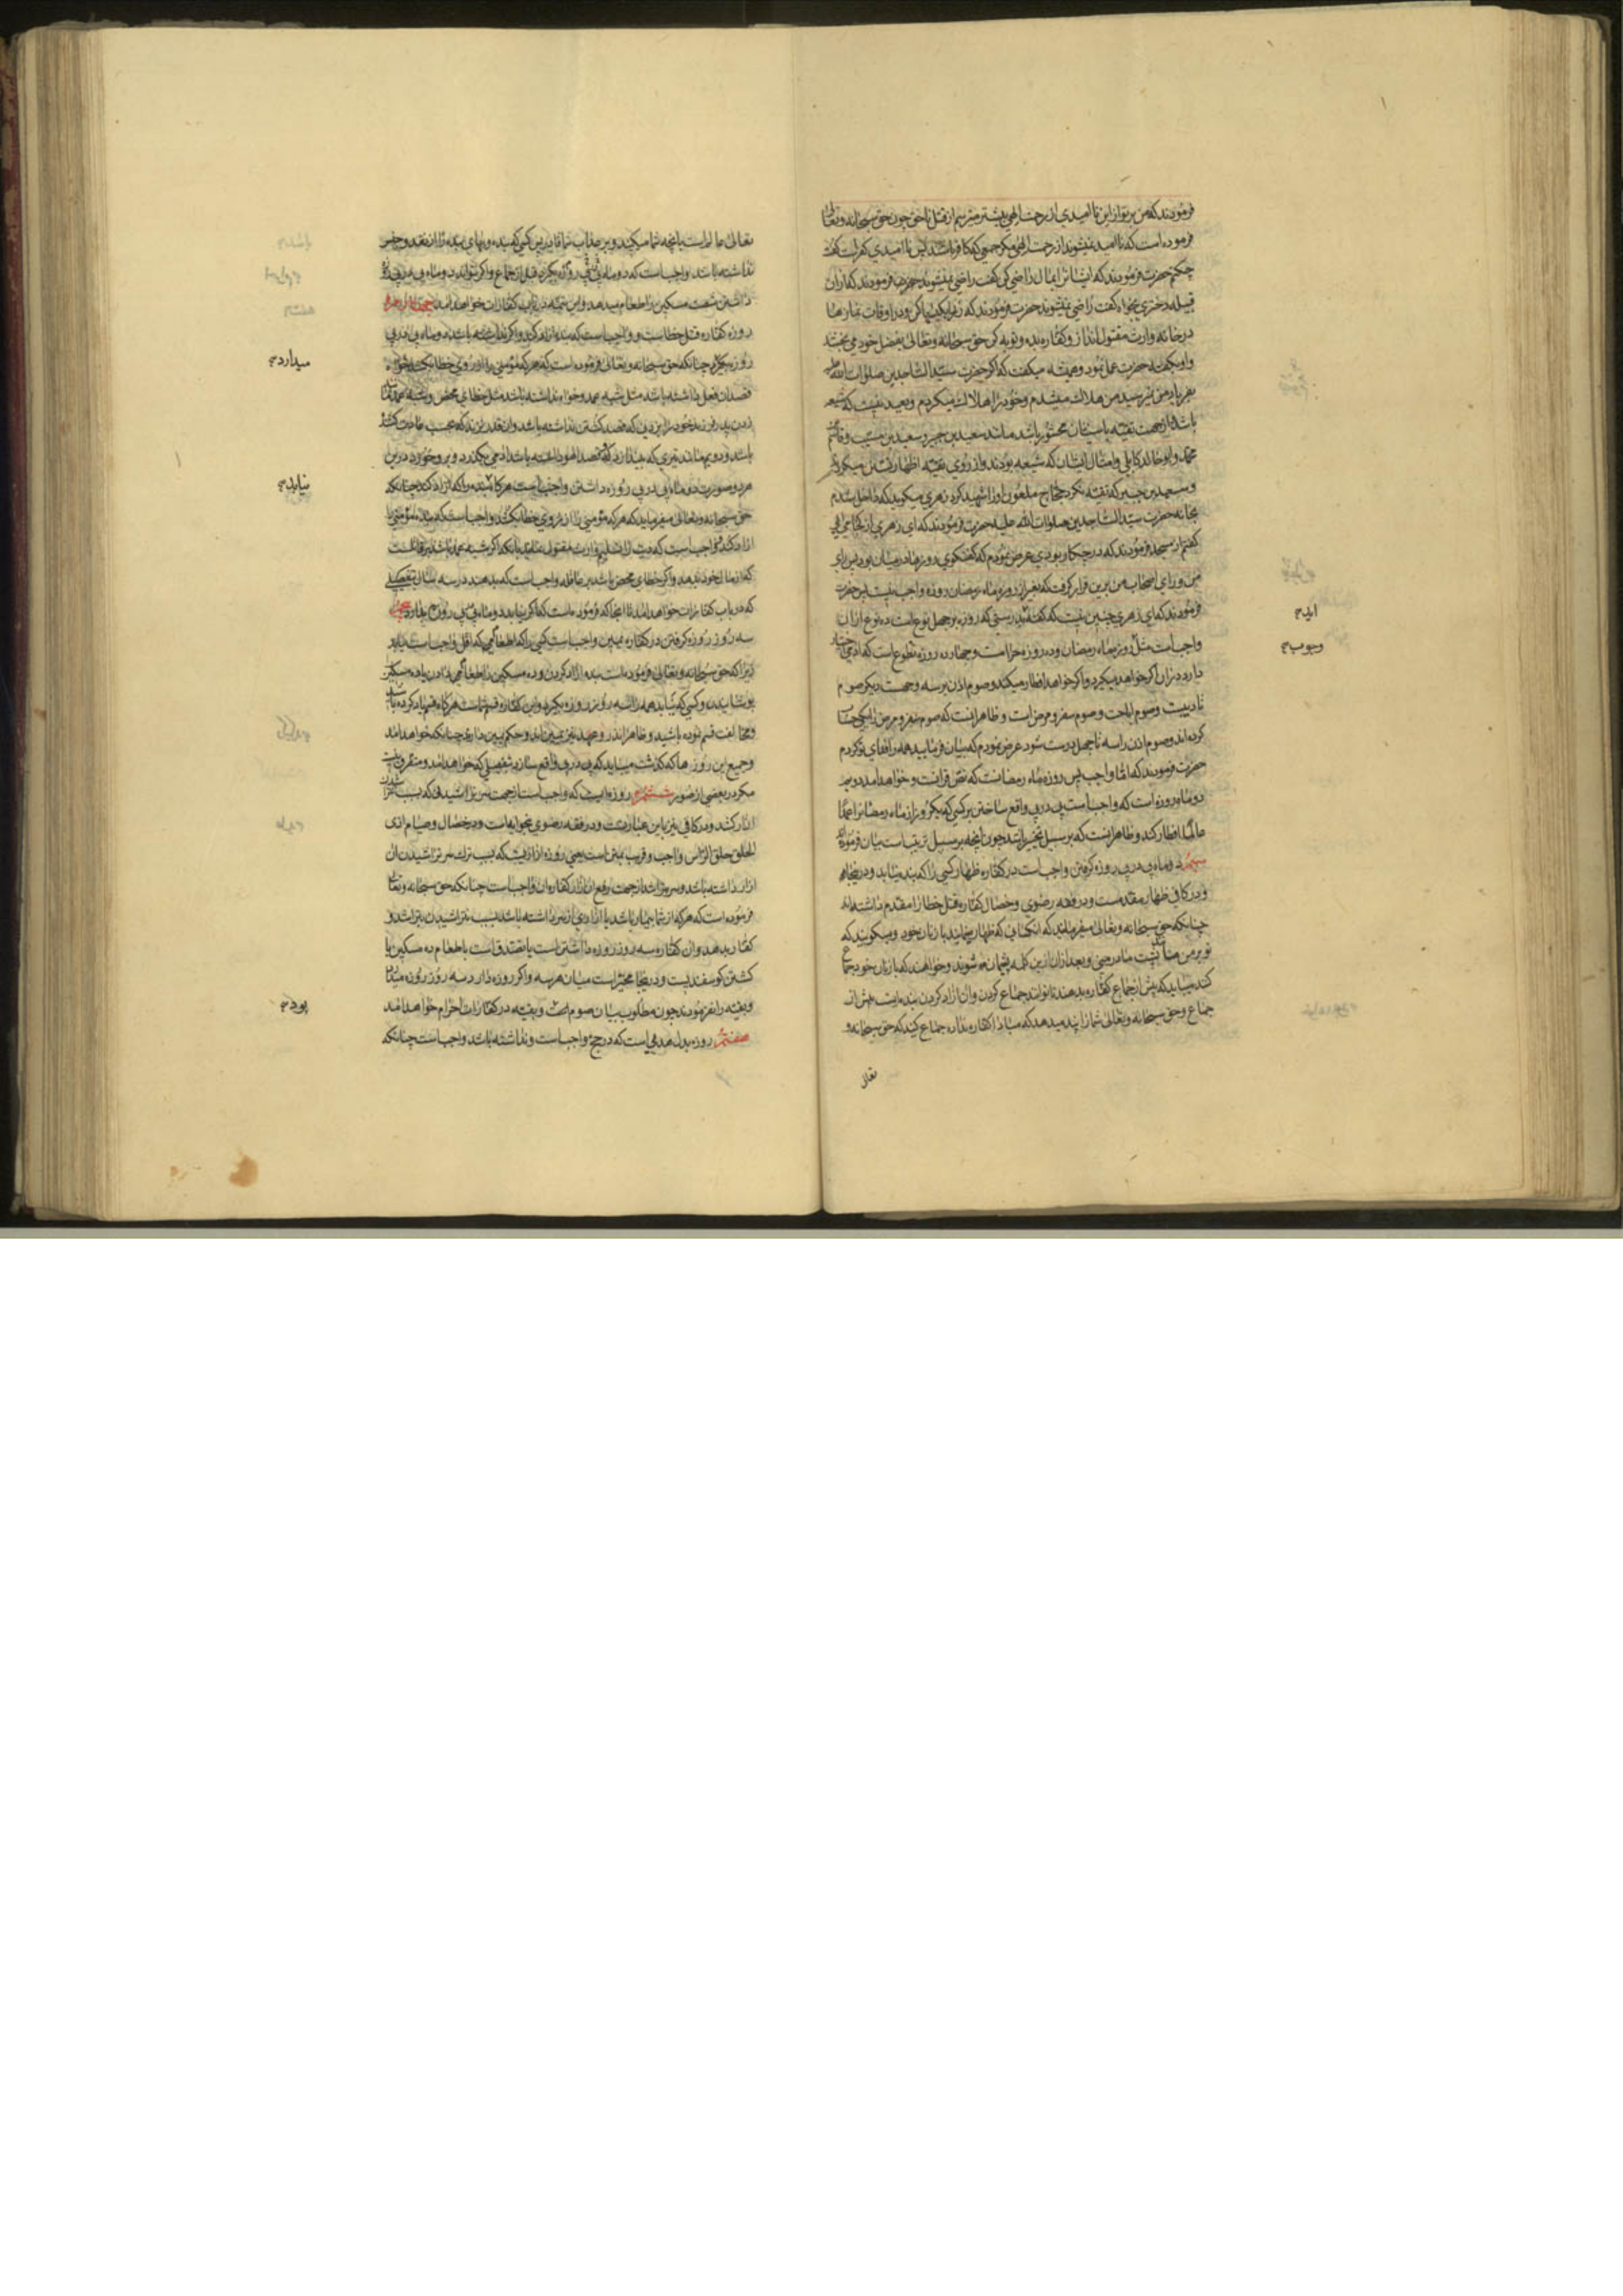 فرمودند که من بر تو از این ناامیدی از رحمت الهی بیشتر میترسم از قتل ناحق چون حق سبحانه و تعالی
فرموده است که ناامید نمیشوند از رحمت الهی مگر جمعی که کافر باشند پس ناامیدی کفر است گفت
چکنم حضرت فرمودند که ایشان را بمال راضی کن گفت راضی نمیشوند حضرت فرمودند که از ان
قبیله دختری بخواه گفت راضی نمیشوند حضرت فرمودند که زر را کیسها کن و در اوقات نمازها
در خانه وارث مقتول انداز و کفاره بده و توبه کن حق سبحانه و تعالی بفضل خود می بخشد
و او بگفته حضرت عمل نمود و همیشه میگفت که اگر حضرت سید الساجدین صلوات الله علیه
بفریاد من نمیرسید من هلاک میشدم و خود را هلاک میکردم و بعید نیست که شیعه
باشد و از جهت تقیه با سنیان محشور باشد مانند سعید بن جبیر و سعید بن مسیب و قاسم
محمد و ابو خالد کابلی و امثال ایشان که شیعه بودند و از روی تقیه اظهار تسنن میکردند
و سعید بن جبیر که تقیه نکرد حجاج ملعون او را شهید کرد زهری میگوید که داخل شدم
بخانه حضرت سید الساجدین صلوات الله علیه حضرت فرمودند که ای زهری از کجا می ایی
گفتم از مسجد فرمودند که در چکار بودی عرض نمودم که گفتگوی روزها در میان بود پس رای
من و رای اصحاب من برین قرار گرفت که بغیر از روزه ماه رمضان روزه واجب نیست پس حضرت
فرمودند که ای زهری چنین نیست که گفته اید بدرستی که روزه بر چهل نوع است ده نوع از ان
واجب است مثل روزه ماه رمضان و ده روزه حرامست و چهارده روزه تطوع است که ادمی اختیار
دارد در ان اگر خواهد میگیرد و اگر خواهد افطار میکند و صوم اذن بر سه وجهست دیگر صوم
تادیبست و صوم اباحت و صوم سفر و مرض است و ظاهر انست که صوم سفر و مرض را یکی حساب
کرده اند و صوم اذن را سه تا چهل درست شود عرض نمودم که بیان فرمایید همه را فدای تو کردم
حضرت فرمودند که اما واجب پس روزه ماه رمضانست که نص قرانست و خواهد امد دویم
دو ماه روزه است که واجب است پی در پی واقع ساختن بر کسی که یکروز از ماه رمضان را عمدا
عالما افطار کند و ظاهر انست که بر سبیل تخییر باشد چون انچه بر سبیل ترتیب است بیان فرموده اند
سیم دو ماه پی در پی روزه گرفتن واجب است در کفاره ظهار کسی را که بنده نیابد و درینجا
و در کافی ظهار مقدمست و در فقه رضوی و خصال کفاره قتل خطا را مقدم داشته اند
چنانکه حق سبحانه و تعالی میفرماید که انکسانی که ظهار مینمایند با زنان خود و میگویند که
تو بر من مثل پشت مادر منی و بعد از ان ازین کلمه پشیمان میشوند و خواهند که با زنان خود جماع
کنند میباید که پیش از جماع کفاره بدهند تا توانند جماع کردن و ان ازاد کردن بنده ایست پیش از
جماع و حق سبحانه و تعالی شما را پند میدهد که مبادا کفاره نداده جماع کنید که حق سبحانه و
تعالی
اید
وجوب
تعالی عالم است بانچه شما میکنید و بر عذاب شما قادر پس کسی که بنده و بهای بنده را از نقد و جنس
نداشته باشد واجب است که دو ماه پی در پی روزه بگیرد قبل از جماع و اگر نتواند دو ماه پی در پی روزه
داشتن شصت مسکین را طعام میدهد و این تتمه در باب کفارات خواهد امد چهارم
روزه کفاره قتل خطاست و واجب است که بنده ازاد کند و اگر نداشته باشد دو ماه پی در پی
روزه بگیرد چنانکه حق سبحانه و تعالی فرموده است که هر که مؤمنی را از روی خطا بکشد خواه
قصد ان فعل داشته باشد مثل شبه عمد و خواه نداشته باشد مثل خطای محض و شبه عمد مثل
زدن پدر فرزند خود را بزدنی که قصد کشتن نداشته باشد و ان قدر نزند که بحسب عادت کشنده
باشد و دویم مانند تیری که بیندازد که قصد اهو داشته باشد ادمی بگذرد و برو خورد درین
هر دو صورت دو ماه پی در پی روزه داشتن واجب است هر گاه بنده را که ازاد کند چنانکه
حق سبحانه و تعالی میفرماید که هر که مؤمنی را از روی خطا بکشد واجب است که بنده مؤمنی را
ازاد کند و واجب است که دیت را تسلیم وارث مقتول نماید بانکه اگر شبه عمد باشد بر قاتلست
که از مال خود بدهد و اگر خطای محض باشد بر عاقله واجب است که بدهند در سه سال بتفصیلی
که در باب کفارات خواهد امد تا انجا که فرموده است که اگر نیابد دو ماه پی در پی روزه بدارد پنجم
سه روز روزه گرفتن در کفاره یمین واجب است کسی را که اطعامی که اقل واجب است نیابد
زیرا که حق سبحانه و تعالی فرموده است بنده ازاد کردن و ده مسکین را طعامی دادن یا ده مسکین را
پوشانیدن و کسی که نیابد همه را سه روز روزه بگیرد و این کفاره قسم شماست هر گاه قسم یاد کرده باشید
و مخالفت قسم نموده باشید و ظاهرا نذر و عهد نیز یمین اند و حکم یمین دارند چنانکه خواهد امد
و جمیع این روزها که گذشت میباید که پی در پی واقع سازد بتفصیلی که خواهد امد و متفرق نیست
مگر در بعضی از صور ششم روزه ایست که واجب است از جهت سر تراشیدنی که بسبب
ازار کشد و در کافی نیز باین عبارتست و در فقه رضوی بخوابه است و در خصال و صیام اذی
الحلق حلق الراس واجب و قریب بمتن است یعنی روزه ازاریست که بسبب ترک سر تراشیدن ان
ازار داشته باشد و سر تراشد از جهت رفع ان ازار کفاره ان واجب است چنانکه حق سبحانه و تعالی
فرموده است که هر که از شما بیمار باشد یا ازاری از سر داشته باشد بسبب نتراشیدن بتراشد و
کفاره بدهد و ان کفاره سه روز روزه داشتن است یا تصدق است باطعام ده مسکین یا
کشتن گوسفندیست و درینجا مخیر است میان هر سه و اگر روزه دارد سه روز روزه میدارد
و بقیه را نفرمودند چون مطلوب بیان صوم است و بقیه در کفارات احرام خواهد امد
هفتم روزه بدل هدیی است که در حج واجب است و نداشته باشد واجب است چنانکه
میدارد
نیابد
بود